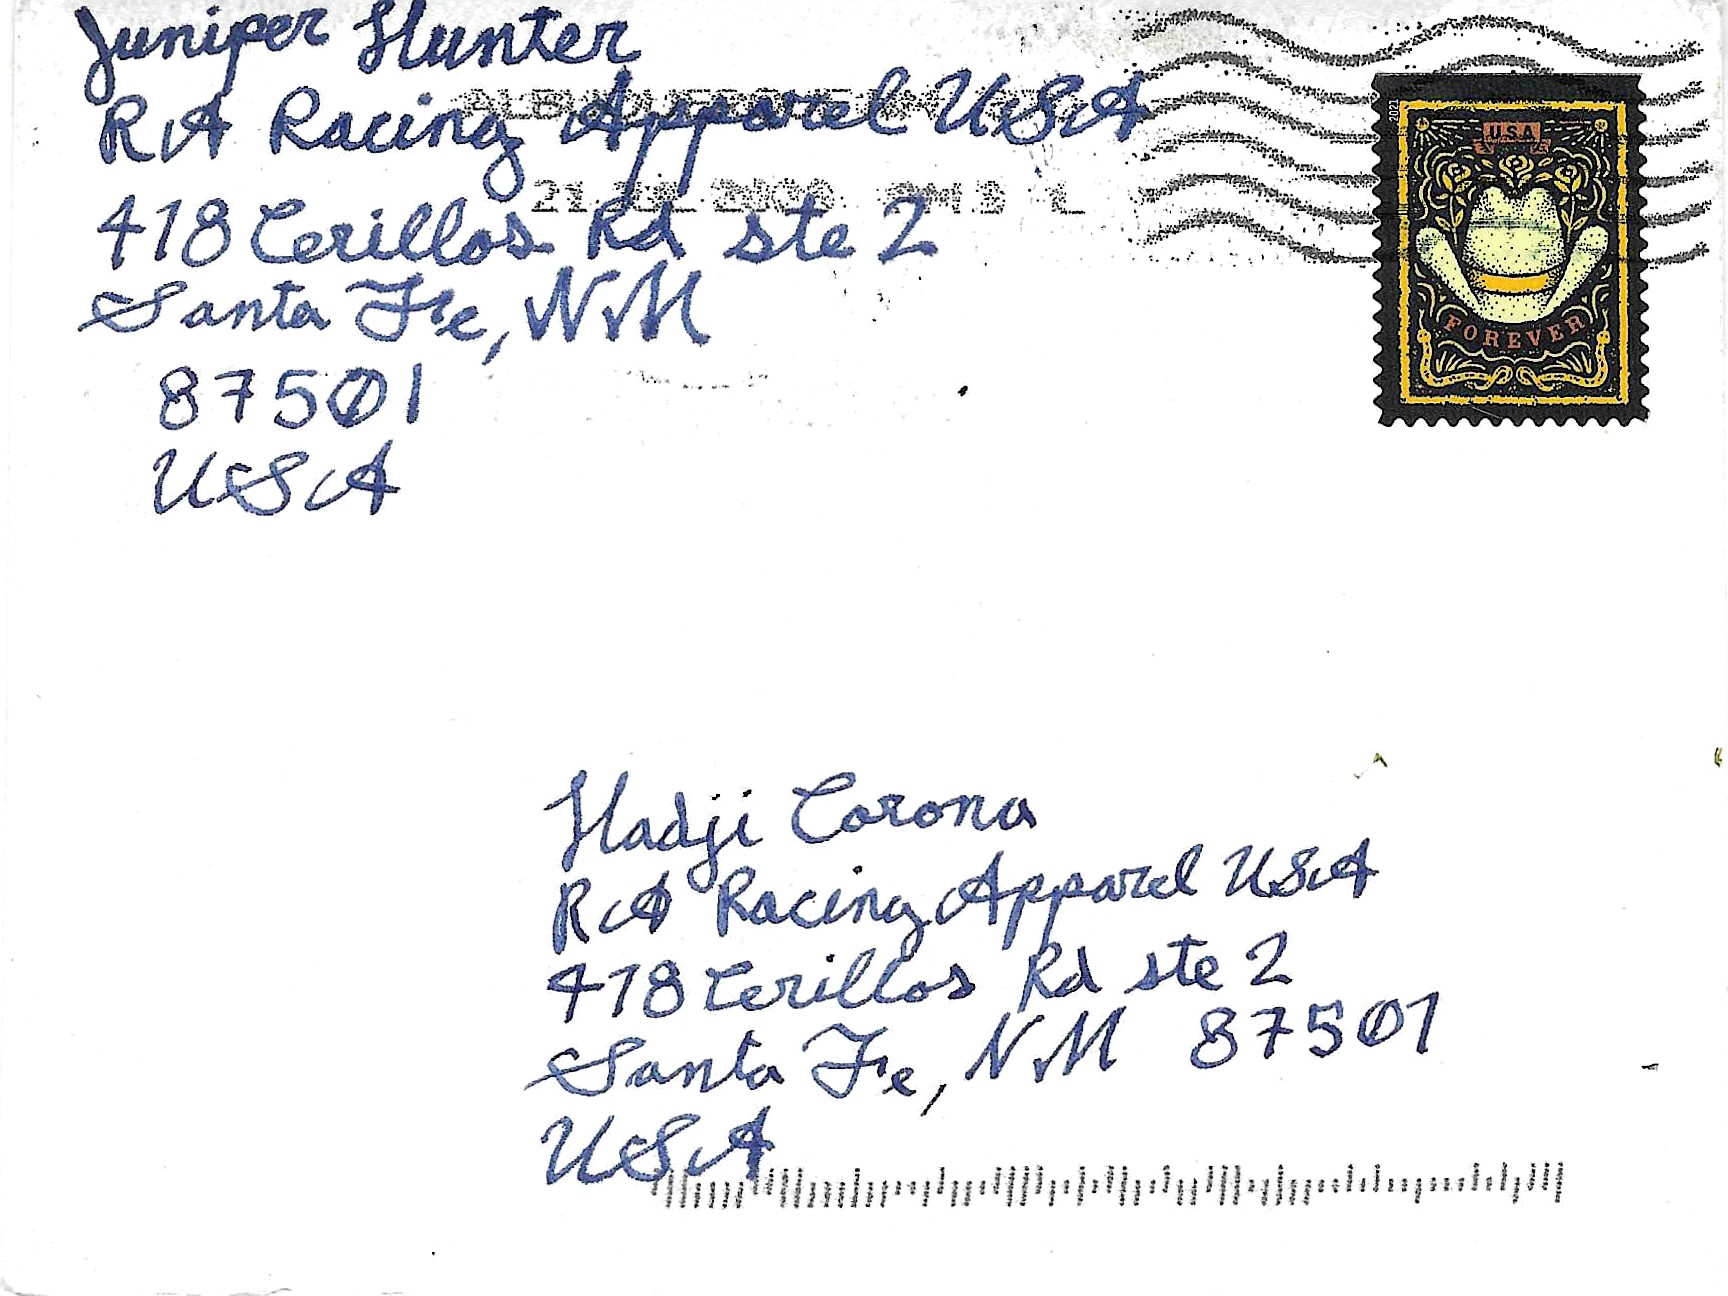 Juniper Hunter
RA Racing Apparel USA
418 Cerillos Rd ste 2
Santa Fe, NM
87501
USA
2021
USA
FOREVER
Hadji Corona
RA Racing Apparel USA
418 Cerillos Rd ste 2
Santa Fe, NM 87501
USA